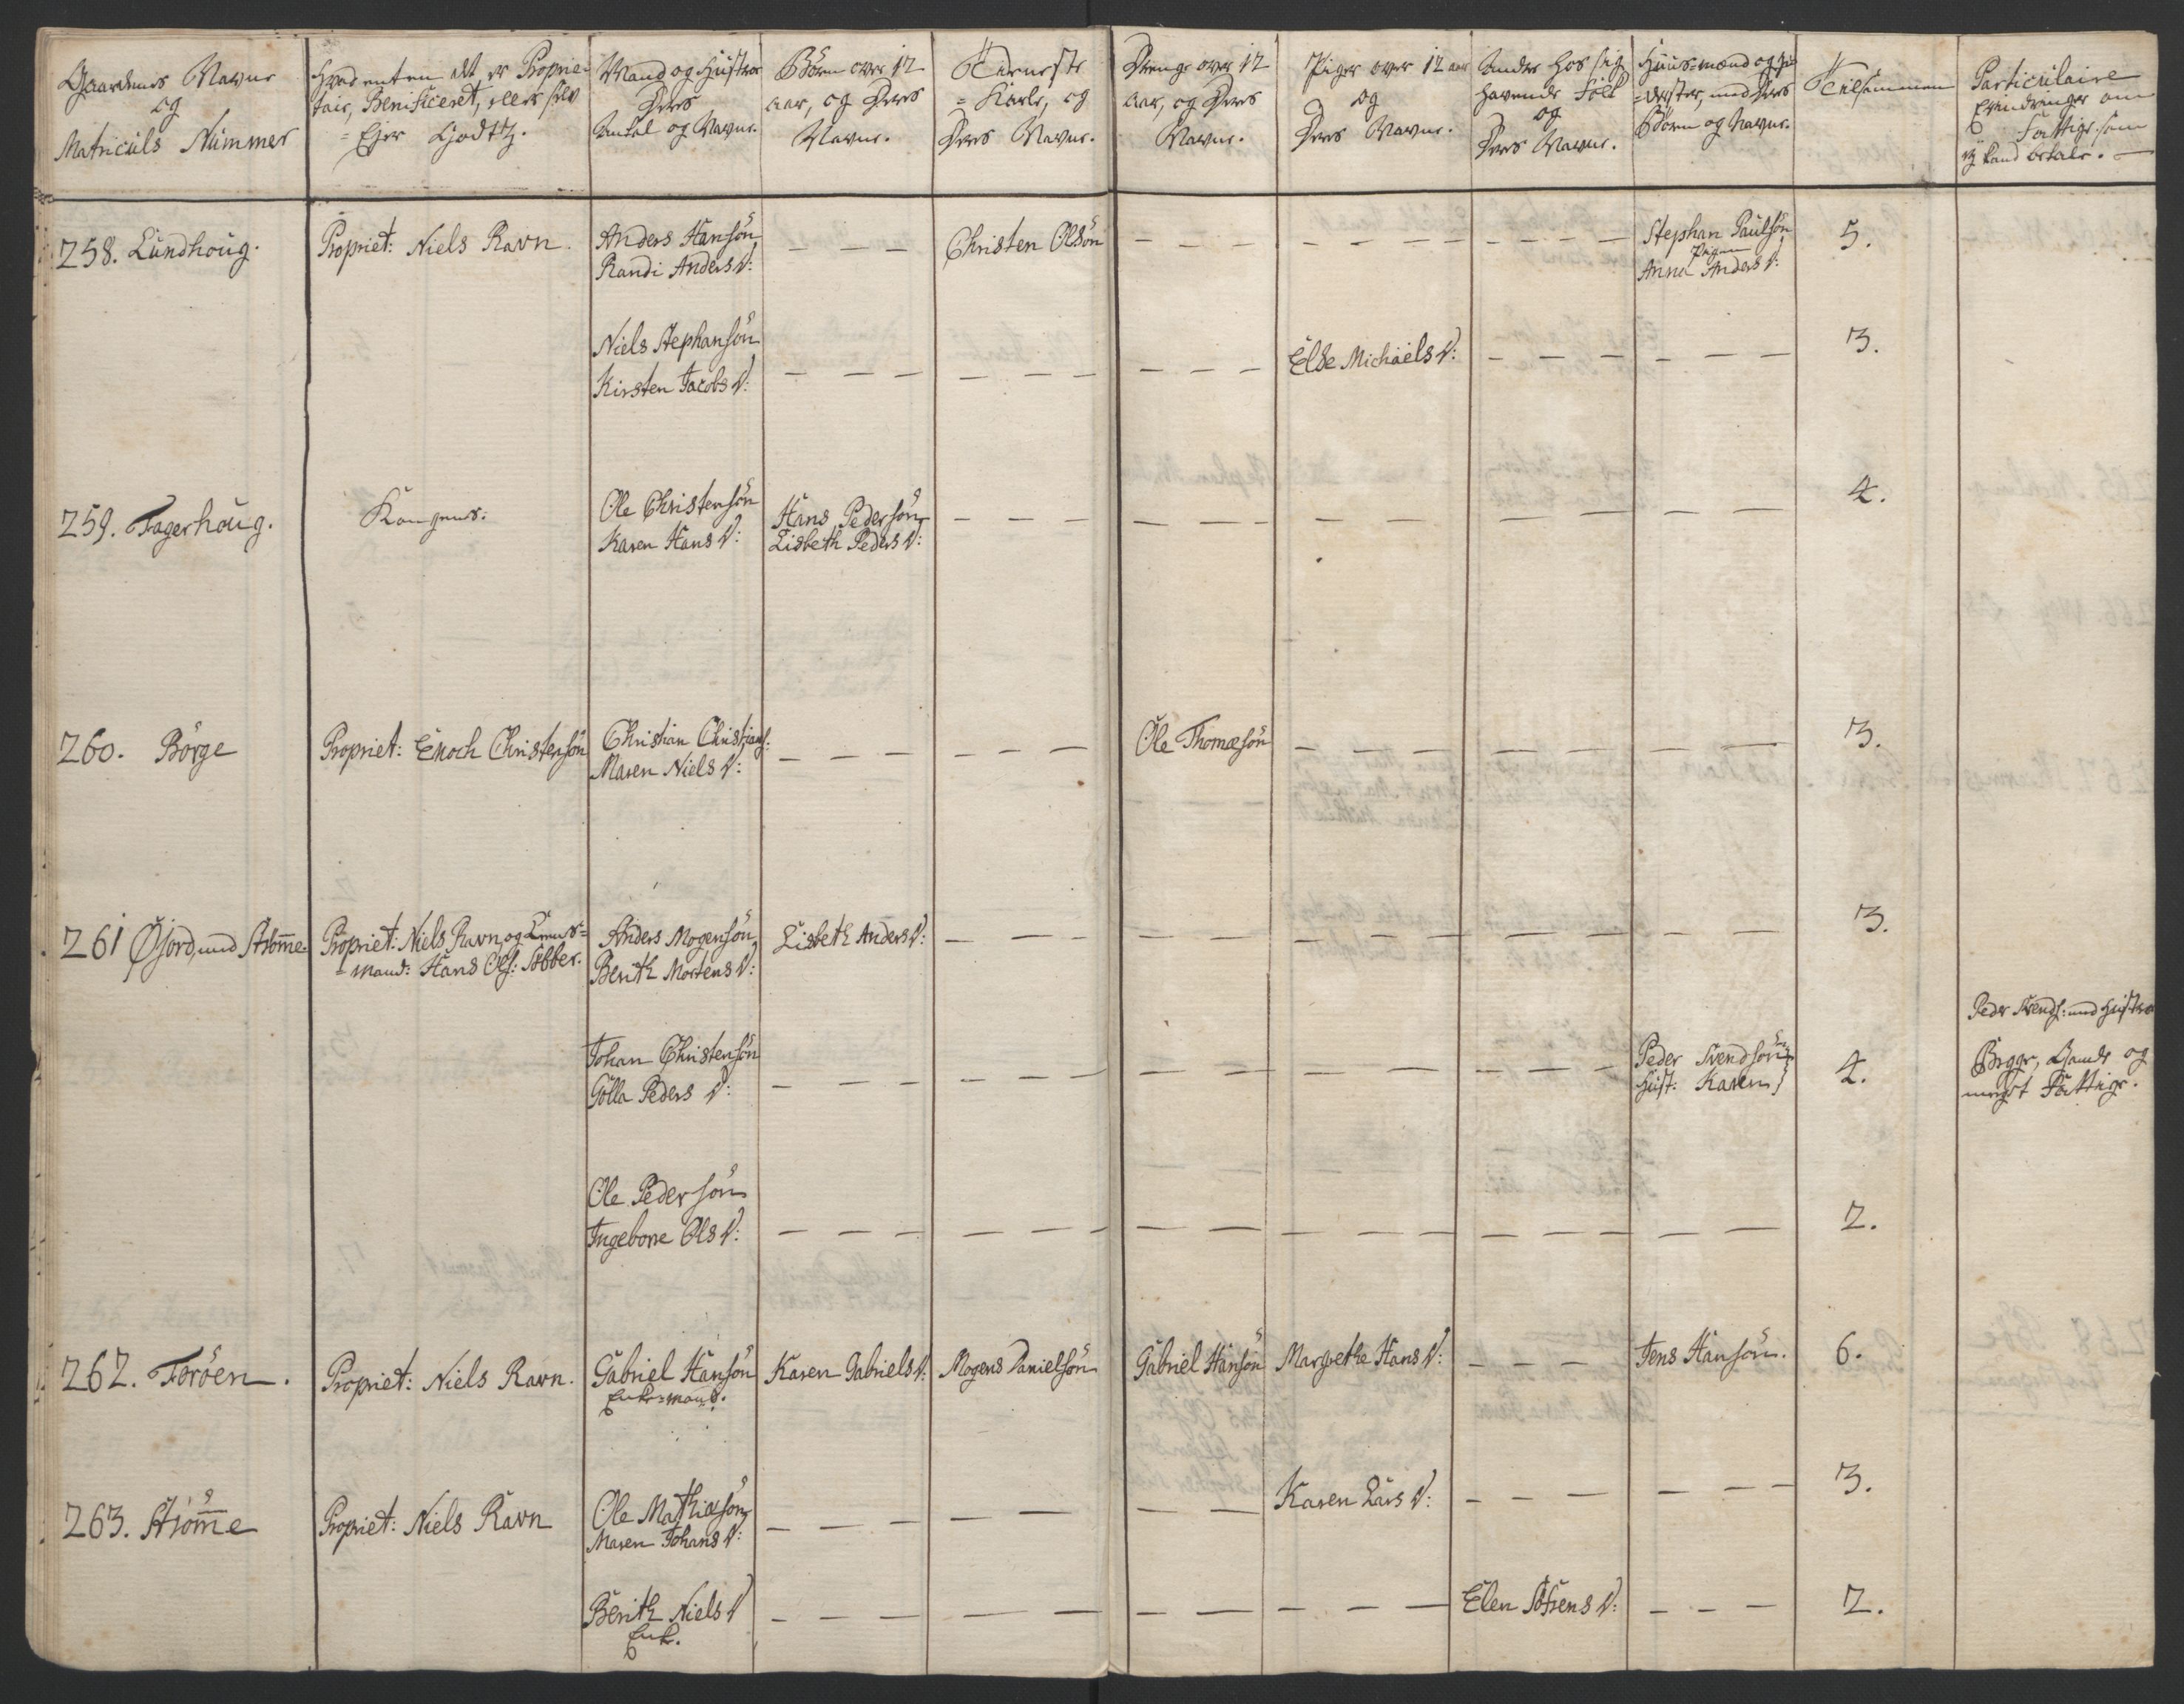 Gaardenes Navne
og
Matriculs Nummer
Hvad enten det er Proprie-
tair, Benificeret, eller selv
= Ejer Godtz.
Mand og Hustroe
Deres
Antal og Navne.
Börn over 12
aar, og Deres
Navne.
Tieneste
= Karle, og
Deres Navne.
Drenge over 12
aar, og Deres
Navne.
Piger over 12 aar
og
Deres Navne.
Andre hos sig
havende Folk
og
Deres Navne.
Huus=mænd og
med Deres
Börn og Navne.
Tilsammen
Particulaire
Erindringer om
Fattige som
ej kand betale. —
258. Lundhoug.
Propriet: Niels Ravn.
Anders Hansön
Randi Anders D:
— — —
Christen Olsön
— — — —
— — — — —
— — — —
Stephan Paulsön
Pigen
Anna Anders D:
5.
Niels Stephansön
Kirsten Jacobs D:
— — —
— — — —
— — —
Else Michaels D:
— — —
— — —
3.
259. Fagerhoug.
Kongens.
Ole Christensön
Karen Hans D:
Hans Pedersön
Lisbeth Peders D:
— — —
— — —
— — —
— — —
— —
4.
260. Börge
Propriet: Enoch Christensön
Christian Christians:
Maren Niels D:
— — —
— — —
Ole Thomæsön
— — —
— — —
— —
3.
261 Öjord, med Strömme.
Propriet: Niels Ravn, og Lens=
= mand: Hans Ols: Sòbber.
Anders Mogensön
Berith Mortens D:
Lisbeth Anders D:
— — —
— — —
— — —
— — —
— — —
3.
Johan Christensön
Golla Peders D:
— — —
— — —
— — —
— — —
— — —
Peder Svendsön
Hust: Karen
4.
Peder Svends: med Hustroe
Begge, Gamle og
meget Fattige.
Ole Pedersön
Ingebore Ols D:
— — —
— — —
— —
— — —
— — —
— —
2.
262. Toröen.
Propriet: Niels Ravn.
Gabriel Hansön
Enke=mand.
Karen Gabriels D:
Mogens Danielsön
Gabriel Hansön
Margrethe Hans D:
— — —
Jens Hansön.
6.
263. Strömme
Propriet: Niels Ravn
Ole Mathiæsön
Maren Johans D:
— — —
— — —
— —
Karen Lars D:
— — —
— — —
3.
Berith Niels D
Enke.
— — —
— —
— —
— — —
Elen Söfrens D:
— — —
2.